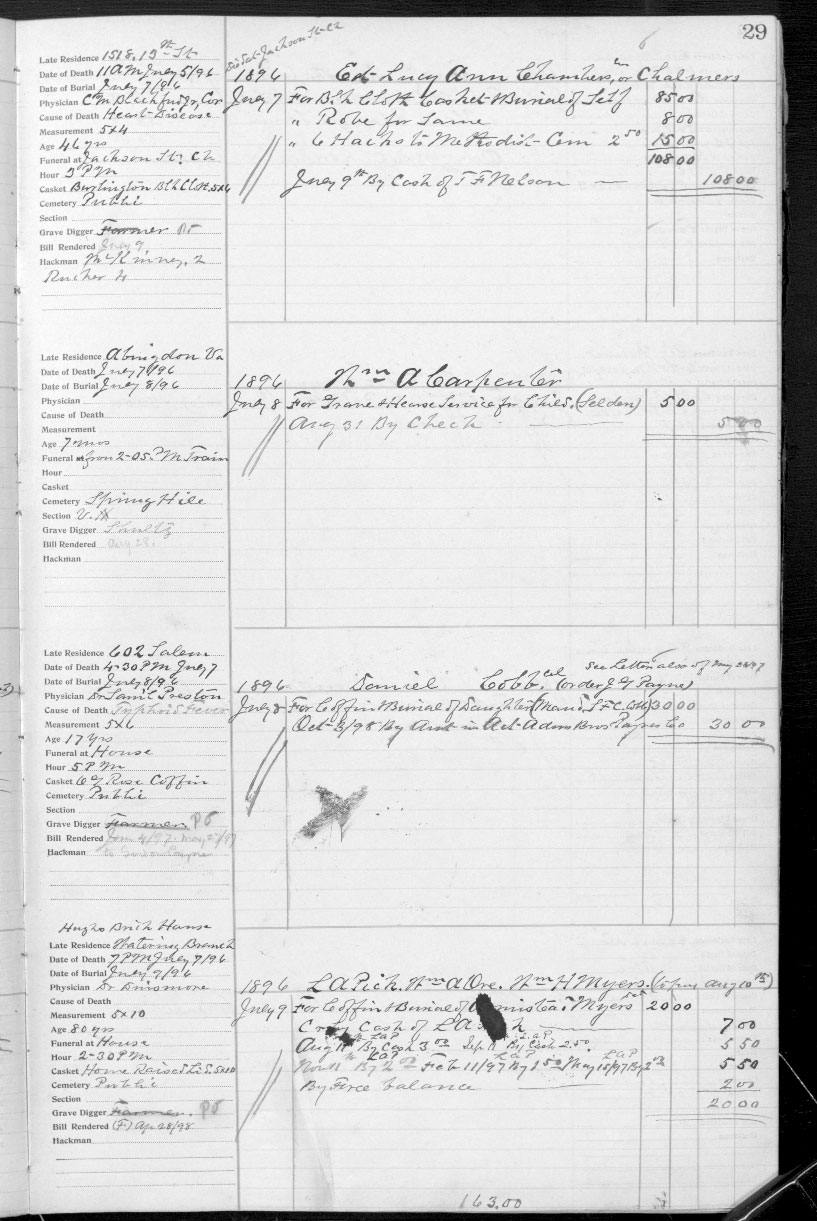 29
Late Residence 1518. 13th St
Date of Death 11 AM July 5/96
Date of Burial July 7/96
Physician Cor
Cause of Death Heart Disease
Measurement 5x4
Age 46 yrs
Funeral at Jackson St. Ch
Hour 3 PM
Casket Burlington Blk Cloth 5x4
Cemetery Public
Section
Grave Digger Farmer
Bill Rendered July 9
Hackman McKinney. 2
Rucker 4
Jackson St Ch
1896 Est Lucy Ann Chambers, or Chalmers
July 7 For Blk Cloth Casket & Burial of Self 85 00
" Robe for Same 8 00
" 6 Hacks to Methodist Cem 2 50 15 00
108 00
July 9th By Cash of T F Nelson — 108 00
Late Residence Abingdon Va
Date of Death July 7/96
Date of Burial July 8/96
Physician
Cause of Death
Measurement
Age 7 mos
Funeral from 2-05 PM Train
Hour
Casket
Cemetery Spring Hill
Section
Grave Digger Shultz
Bill Rendered Aug 28.
Hackman
1896 Wm A Carpenter
July 8 For Grave & Hearse Service for Child. (Selden) 5 00
Aug 31 By Check — 5 00
Late Residence 602 Salem
Date of Death 4-30 PM July 7
Date of Burial July 8/96
Physician Dr Saml Preston
Cause of Death Typhoid Fever
Measurement 5x6
Age 17 Yrs
Funeral at House
Hour 5 PM
Casket Rose Coffin
Cemetery Public
Section
Grave Digger Farmer
Bill Rendered
Hackman
See Letter also of May 28/97
1896 Daniel Cobb. col (order J G Payne)
July 8 For Coffin & Burial of Daughter 30 00
Oct 3/98 By Amt in Act Adams Bros Payne Co 30 00
Hughs Brick House
Late Residence Watering Branch
Date of Death 7 PM July 7/96
Date of Burial July 9/96
Physician Dr Dinsmore
Cause of Death
Measurement 5x10
Age 80 yrs
Funeral at House
Hour 2-30 PM
Casket Home Raised 5x10
Cemetery Public
Section
Grave Digger Farmer.
Bill Rendered (F) Ap 28/98
Hackman
1896 Wm H Myers. (to pay Aug 10th)
July 9 For Coffin & Burial of Myers 20 00
Cash of L A 7 00
Aug 11 By Cash 3 00 Sep 11 By Cash 2.50 5 50
Nov 11 By 2 00 Feb 11/97 By 1 50 May 15/97 By 2 00 5 50
By balance — 2 00
20 00
163.00